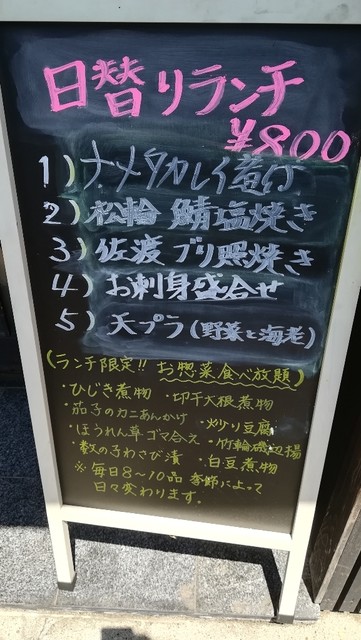 日替りランチ
¥800
1) ナメタカレイ煮付
2) 松輪 鯖塩焼き
3) 佐渡 ブリ照焼き
4) お刺身盛合せ
5) 天プラ(野菜と海老)
(ランチ限定!! お惣菜食べ放題)
・ひじき煮物 ・切干大根煮物
・茄子のカニあんかけ ・炒り豆腐
・ほうれん草ゴマ合え ・竹輪磯辺揚
・数の子わさび漬 ・白豆煮物
※毎日8〜10品 季節によって
日々変わります。